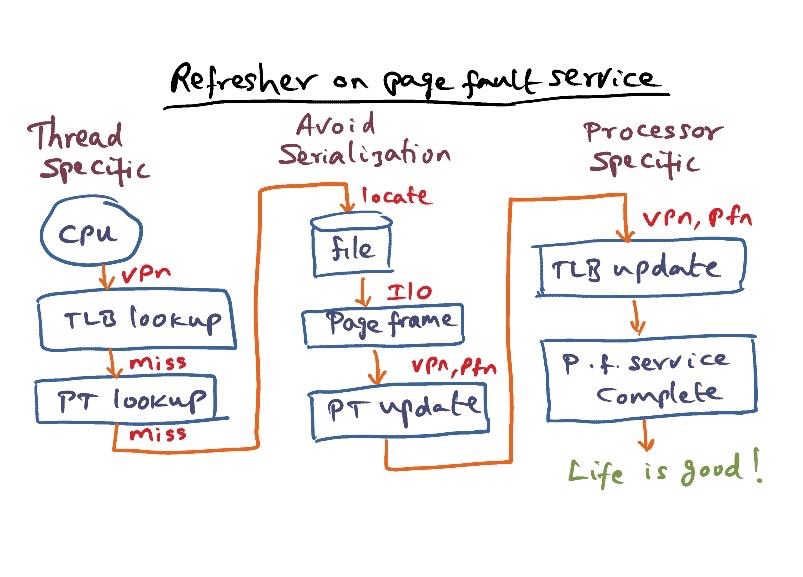 Refresher on page fault service
Thread
Specific
CPU
VPn
TLB lookup
miss
PT lookup
miss
Avoid
Serialization
locate
file
I/O
Page frame
VPn, Pfn
PT update
Processor
Specific
VPn, Pfn
TLB update
P.f. service
Complete
Life is good!